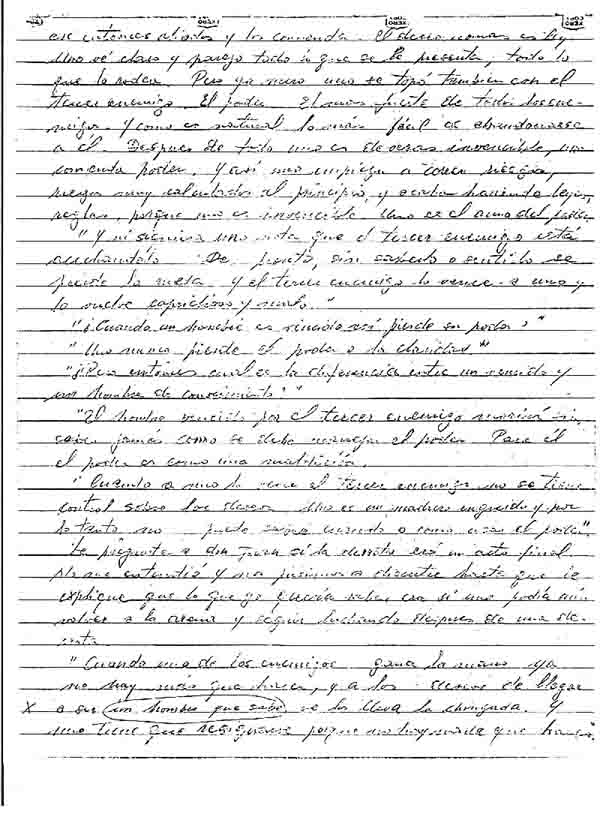 ese entonces aliados y los comanda. El deseo
Uno vé claro y parejo todo lo que se le presenta, todo lo
que lo rodea. Pero ya uno se topó tambien con el
tercer enemigo. El poder. El mas fuerte de todos los ene-
migos. Y como es natural lo más fácil es abandonarse
a él. Despues de todo uno es de veras invencible, uno
comanda poder. Y así uno empieza a correr riesgos,
riesgos muy calculados al principio, y acaba haciendo leyes,
reglas, porque uno es invencible. Uno es el amo del poder.
"Y ni siquiera uno nota que el tercer enemigo está
De pronto, sin saberlo o sentirlo se
pierde la meta. Y el tercer enemigo lo vence a uno y
lo vuelve caprichoso y
"¿Cuando un hombre es vencido así pierde su poder?"
"Uno nunca pierde el poder o la claridad."
"¿Pero entonces cual es la diferencia entre un vencido y
un hombre de conocimiento?"
"El hombre vencido por el tercer enemigo morirá sin
saber jamás como se debe manejar el poder. Para él
el poder es como una maldición.
Cuando a uno lo vence el tercer enemigo no se tiene
control sobre los deseos. Uno es un y por
lo tanto no puede saber cuando o como usar el poder".
Le pregunté a don Juan si la derrota era un acto final.
No me entendió y nos pusimos a discutir hasta que le
expliqué que lo que yo quería saber, era si uno podía aún
volver a la arena y seguir luchando despues de una de-
rrota.
"Cuando uno de los enemigos gana la mano ya
no hay más que hacer, y a los deseos de llegar
X a ser un hombre que sabe se los lleva la chingada. Y
uno tiene que resignarse porque no hay nada que hacer".